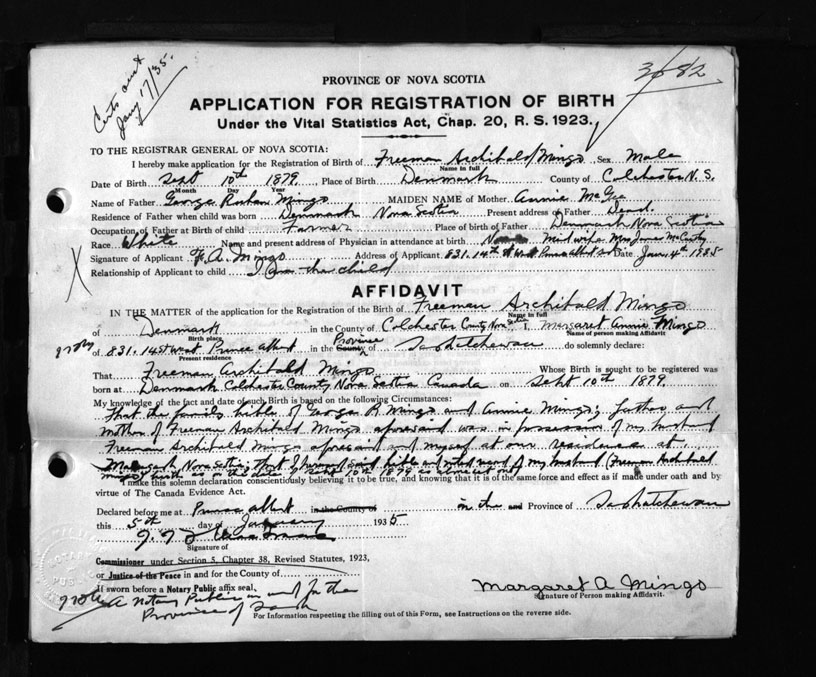 Certs and
Jany 17/35.
3682
PROVINCE OF NOVA SCOTIA
APPLICATION FOR REGISTRATION OF BIRTH
Under the Vital Statistics Act, Chap. 20, R. S. 1923.
TO THE REGISTRAR GENERAL OF NOVA SCOTIA:
I hereby make application for the Registration of Birth of Freeman Archibald Mingo Sex Male
Name in full
Date of Birth Sept 10th 1879. Place of Birth Denmark County of Colchester N. S.
Month Day Year
Name of Father George Mingo MAIDEN NAME of Mother Annie McGee
Residence of Father when child was born Denmark Nova Scotia Present address of Father Dead.
Occupation of Father at Birth of child Farmer Place of birth of Father Denmark Nova Scotia
Race White Name and present address of Physician in attendance at birth Midwife Mrs
Signature of Applicant F. A. Mingo Address of Applicant 831. 14th St West Prince Albert Date Jan. 4th 1935
Relationship of Applicant to child I am the child
AFFIDAVIT
IN THE MATTER of the application for the Registration of the Birth of Freeman Archibald Mingo
Name in full
of Denmark in the County of Colchester County Nova Scotia I, Margaret Annie Mingo
Birth place Name of person making Affidavit
of 831. 14 St West Prince Albert in the County Province of Saskatchewan do solemnly declare:
Present residence
That Freeman Archibald Mingo Whose Birth is sought to be registered was
born at Denmark Colchester County Nova Scotia Canada on Sept 10th 1879.
My knowledge of the fact and date of such Birth is based on the following Circumstances:
That the family bible of George R Mingo and Annie Mingo, father and
mother of Freeman Archibald Mingo aforesaid was in possession of my husband
Freeman Archibald Mingo aforesaid and myself at our residence at
Malagash Nova Scotia, that I said bible and noted record of my husband (Freeman Archibald
Mingo) birth Sept 10th 1879
I make this solemn declaration conscientiously believing it to be true, and knowing that it is of the same force and effect as if made under oath and by
virtue of The Canada Evidence Act.
Declared before me at Prince Albert in the County of in the and Province of Saskatchewan
this 5th day of January 1935
Signature of
Commissioner under Section 5, Chapter 38, Revised Statutes, 1923,
or Justice of the Peace in and for the County of
If sworn before a Notary Public affix seal,
A Notary Public in and for the
Province of Sask
Margaret A. Mingo
Signature of Person making Affidavit.
For Information respecting the filling out of this Form, see Instructions on the reverse side.